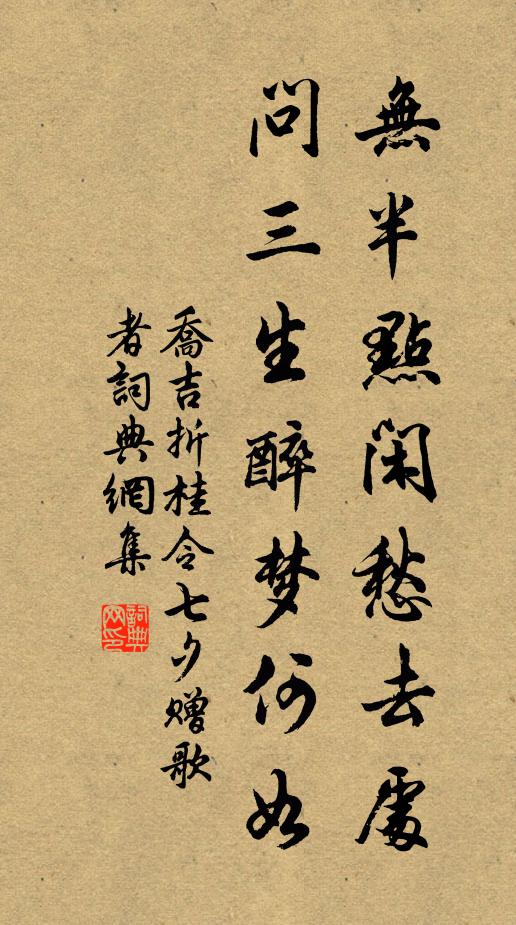 無半點閑愁去處
問三生醉梦何如
喬吉折桂令七夕赠歌
者詞典網集
詞典
网印